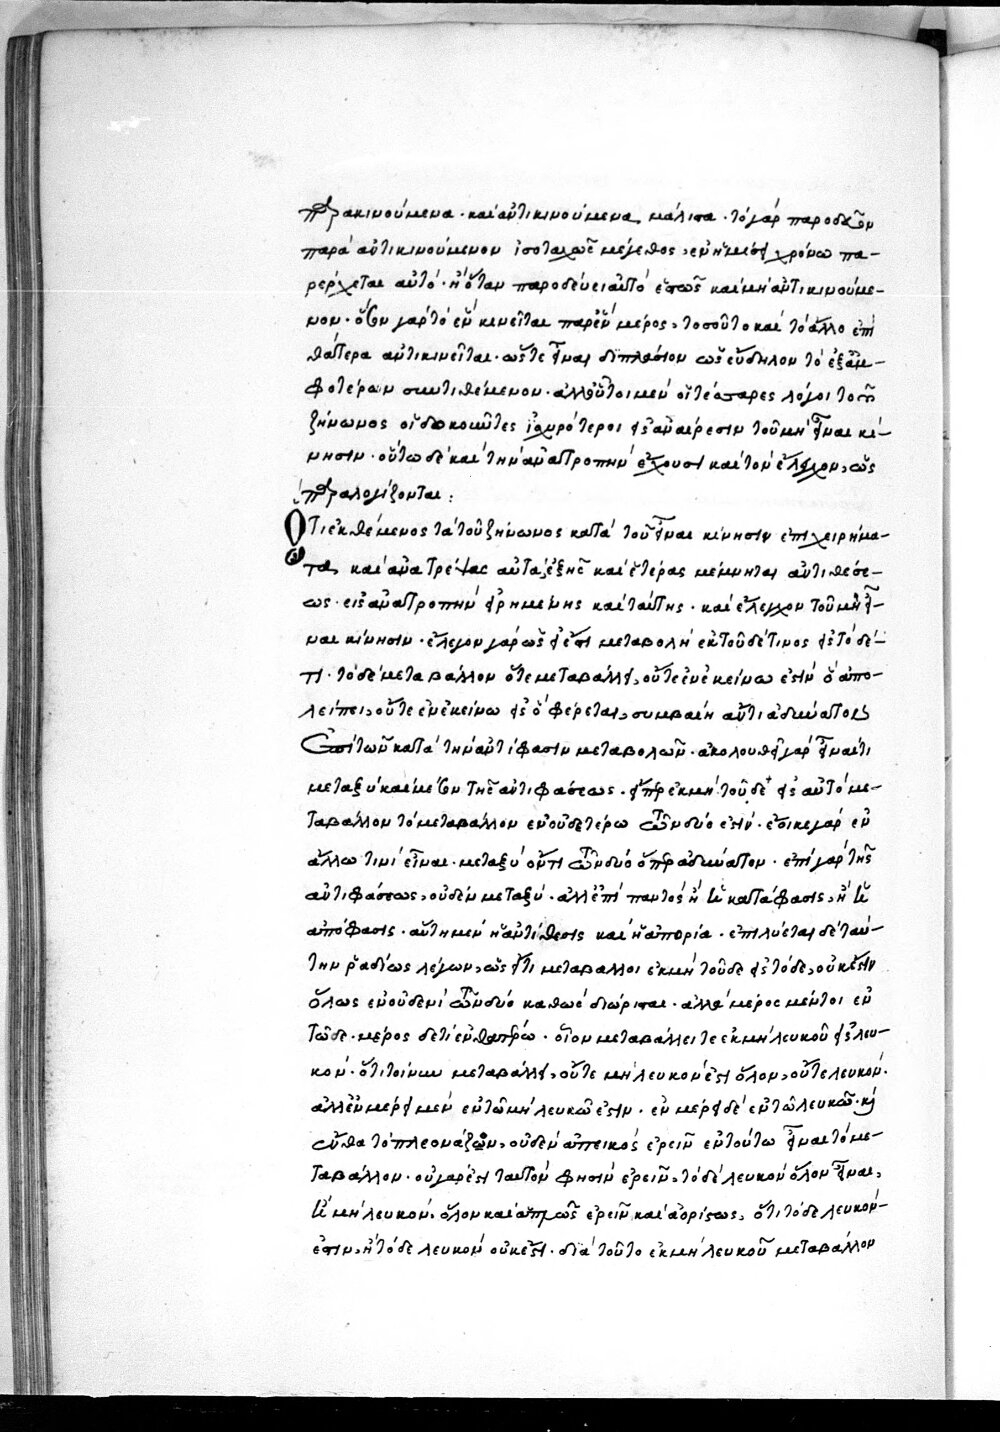 παρακινούμενα · καὶ ἀντικινούμενα μάλιστα · τὸ γὰρ παροδεῦον
παρὰ ἀντικινούμενον ἰσοταχῶς μέγεθος, ἐν ἡμίσει χρόνω πα-
ρέρχεται αὐτὸ · ἢ ὅταν παροδεύει αὐτὸ ἑστὼς καὶ μὴ ἀντικινούμε-
νον · ὅσον γὰρ τὸ ἓν κινεῖται παρ' ἓν μέρος, τοσοῦτο καὶ τὸ ἄλλο ἐπὶ
θάτερα ἀντικινεῖται · ὥστε εἶναι διπλάσιον ὡς εὔδηλον τὸ ἐξ ἀμ-
φοτέρων συντιθέμενον · ἀλλ' οὗτοι μὲν οἱ τέσσαρες λόγοι τοῦ
ζήνωνος οἱ δοκοῦντες ἰσχυρότεροι εἰς ἀναίρεσιν τοῦ μὴ εἶναι κί-
νησιν · οὕτω δὲ καὶ τὴν ἀνατροπὴν ἔχουσι καὶ τὸν ἔλεγχον, ὡς
παραλογίζονται :
Ὅτι ἐκθέμενος τὰ τοῦ ζήνωνος κατὰ τοῦ εἶναι κίνησιν ἐπιχειρήμα-
τα, καὶ ἀνατρέψας αὐτὰ, ἑξῆς καὶ ἑτέρας μέμνηται ἀντιθέσε-
ως · εἰς ἀνατροπὴν εἰρημένης καὶ ταύτης · καὶ ἔλεγχον τοῦ μὴ εἶ-
ναι κίνησιν · ἔλεγον γὰρ ὡς εἰ ἔστι μεταβολὴ ἐκ τοῦδέ τινος εἰς τόδέ
τι · τὸ δὲ μεταβάλλον ὅτε μεταβάλλει, οὔτε ἐν ἐκείνω ἐστὶν ὃ ἀπο-
λείπει, οὔτε ἐν ἐκείνω εἰς ὃ φέρεται, συμβαίη ἄν τι ἀδύνατον
ἐπὶ τῶν κατὰ τὴν ἀντίφασιν μεταβολῶν · ἀκολουθεῖ γὰρ εἶναί τι
μεταξὺ καὶ μέσον τῆς ἀντιφάσεως · εἴπερ ἐκ μὴ τοῦδε εἰς αὐτὸ με-
ταβάλλον τὸ μεταβάλλον ἐν οὐδετέρω τῶν δύο ἐστίν · ἔοικε γὰρ ἐν
ἄλλω τινὶ εἶναι · μεταξὺ οὔτι τῶν δύο ὅπερ ἀδύνατον · ἐπὶ γὰρ τῆς
ἀντιφάσεως, οὐδὲν μεταξύ · ἀλλ' ἐπὶ παντὸς ἢ ἡ κατάφασις, ἢ ἡ
ἀπόφασις · αὕτη μὲν ἡ ἀντίθεσις καὶ ἡ ἀπορία · ἐπιλύεται δὲ ταύ-
την ῥαδίως λέγων, ὡς εἴ τι μεταβάλλοι ἐκ μὴ τοῦδε εἰς τόδε, οὐκ ἔστιν
ὅλως ἐν οὐδενὶ τῶν δύο καθὼς διώρισται · ἀλλὰ μέρος μέντοι ἐν
τῶδε · μέρος δέ τι ἐν θατέρω · οἷον μεταβάλλει τε ἐκ μὴ λευκοῦ εἰς λευ-
κόν · ὅτι τοίνυν μεταβάλλει, οὔτε μὴ λευκόν ἐστι ὅλον, οὔτε λευκόν ·
ἀλλ' ἐν μέρει μὲν ἐν τῶ μὴ λευκῶ ἐστιν · ἐν μέρει δὲ ἐν τῶ λευκῶ · καὶ
ἔνθα τὸ πλεονάζον, οὐδὲν ἀπεικὸς ἐρεῖν ἐν τούτω εἶναι τὸ με-
ταβάλλον · οὐ γάρ ἐστι ταυτὸν φησὶν ἐρεῖν, τόδε λευκὸν ὅλον εἶναι,
ἢ μὴ λευκόν · ὅλον καὶ ἁπλῶς ἐρεῖν καὶ ἀορίστως, ὅτι τόδε λευκόν
ἐστιν, ἢ τόδε λευκὸν οὐκ ἔστι · διὰ τοῦτο ἐκ μὴ λευκοῦ μεταβάλλον